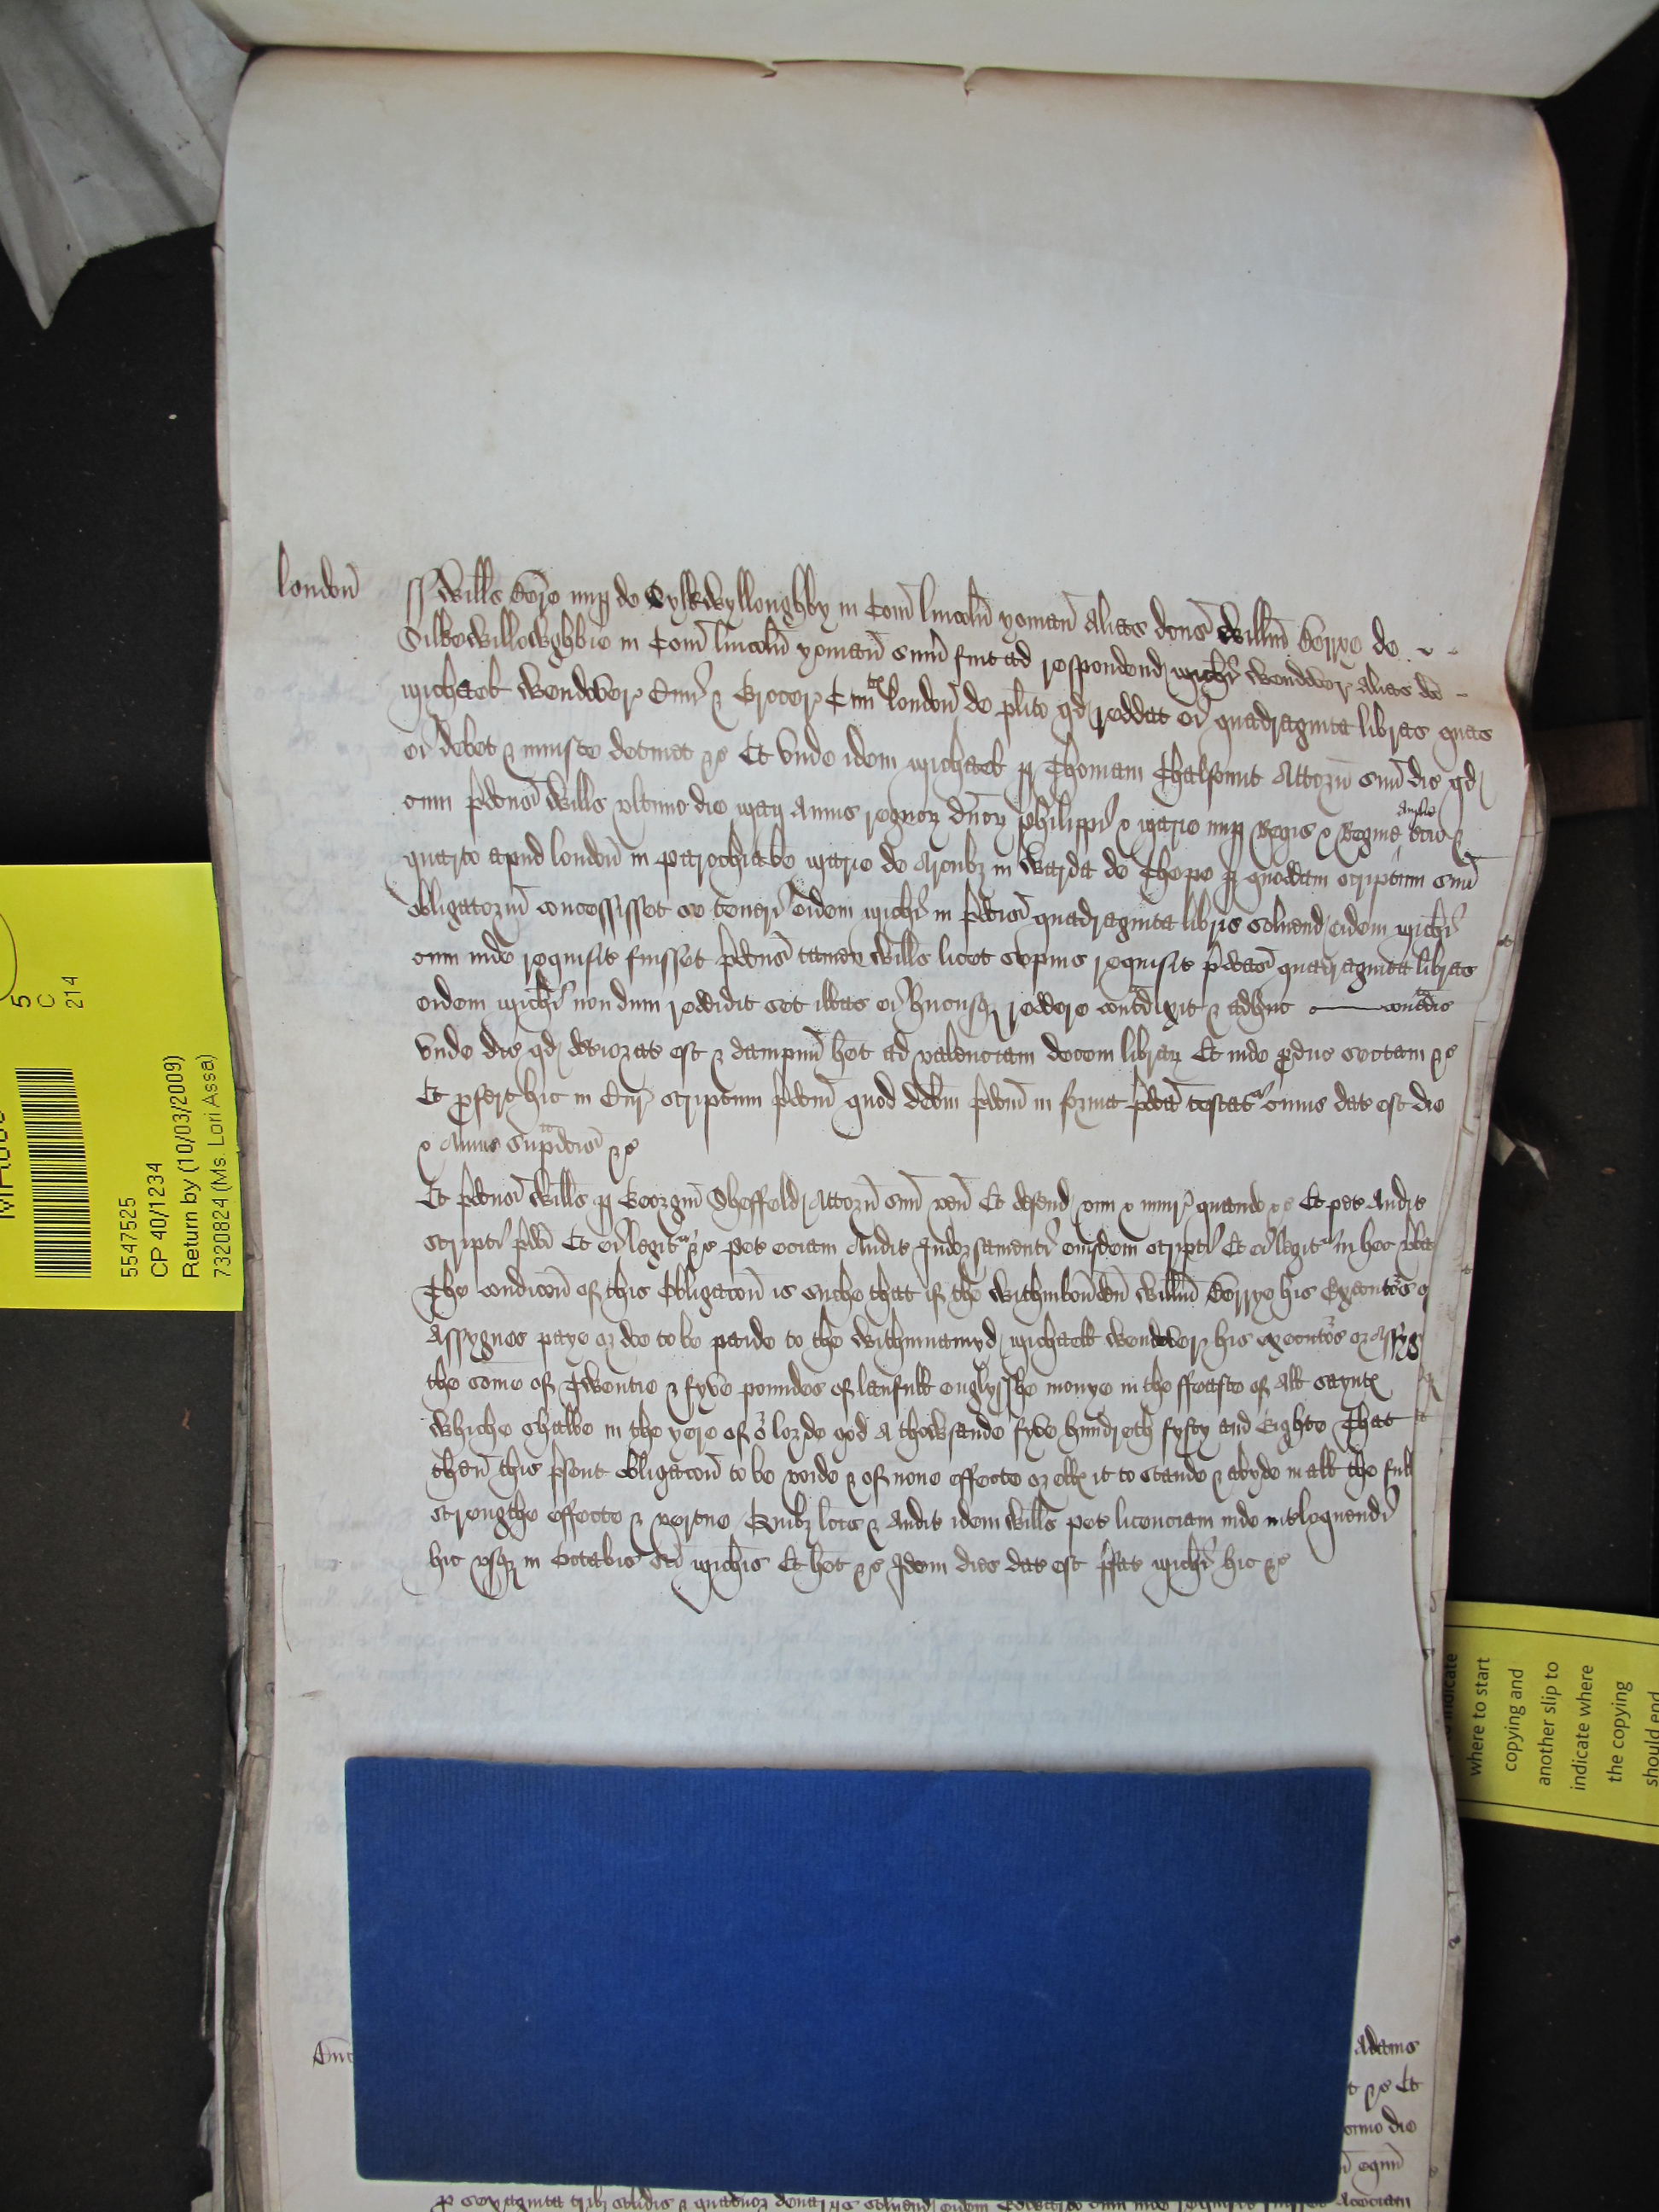 londoñ
ss Wills Berre nup de Sylkwylloughby in Com̃ lincolñ yoman̄ Alias dcus̃ Willm̃ Berrye de
Silkewillowghbie in Com̃ lincolñ yoman̄ sum̃ fuit ad respondend Mich̃i Wendover Alias dc̃o
Michaeli Wendover Civi & Grocer Civitt londoñ de pl̃ito qd reddat ei quadraginta libras quas
ei debet & iniuste detinet &c Et unde idem Michael p Thomam Attorñ suũ dic qd
cum p̃dcus̃ Wills ultimo die Maii Annis regnor dñor Philippi & Marie nup Regis & Regine Anglie &
quarto apud londoñ in parochia be Marie de Arcubz in Warda de Chepe p quoddam scriptum suũ
obligatoriũ concessisset se teneri eidem Mich̃i in p̃dcis̃ quadraginta libris solvend eidem Mich̃i
cum inde requisit fuisset p̃dcus̃ tamen Wills licet sepius requisit p̃dcas̃ quadraginta libras
eidem Mich̃i nondum reddidit set illas ei hucusqz reddere contr̃dixit & adhuc contr̃dic
unde dic qd deteriorat est & dampnũ het ad valenciam decem librar Et inde p̃duc sectam &c
Et p̃fert hic in Cur scriptum p̃dcm̃ quod debm̃ p̃dcm̃ in forma p̃dca testatr cuius dat est die
& Annis sup̃dcis̃ &c
Et p̃dcus̃ Wills p Georgiũ Sheffeld Attorñ suũ veñ Et defend vim & iniur quando &c Et pet Audit
scripti p̃dci Et ei legitr &c pet eciam Audit Indorsamenti eiusdem scripti Et ei legitr in hec vba
The condicoñ of this Obligacoñ is suche that if the withinbounden Willm̃ Berrye his Executors o
Assygnes paye or doe to be paide to the withinnamyd Michaell Wendover his executors or Assyg
the some of Twentie & fyve poundes of laufull englysshe monye in the ffeaste of All saynt
whiche shalbe in the yere of or lorde god A thowsande fyve hundreth fyfty and Eighte That
than̄ this p̃sent obligacoñ to be voide & of none effecte or ell it to stande & abyde in all the full
strengthe effecte & vertue Quibz lcis & Audit idem Wills pet licenciam inde intloquendi
hic usqz in Octabis sci Michis Et het &c Idem dies dat est p̃fat Mich̃i hic &c
Adams
t &c Et
simo die
5
C
214
5547525
CP 40/1234
Return by (10/03/2009)
7320824 (Ms. Lori Assa)
indicate
where to start
copying and
another slip to
indicate where
the copying
should end